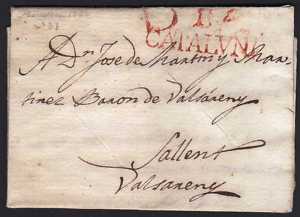 D 12
CATALUÑ
A Dn. Jose de Martin y Mar
tinez Baron de Valsareny
Sallent
Valsareny